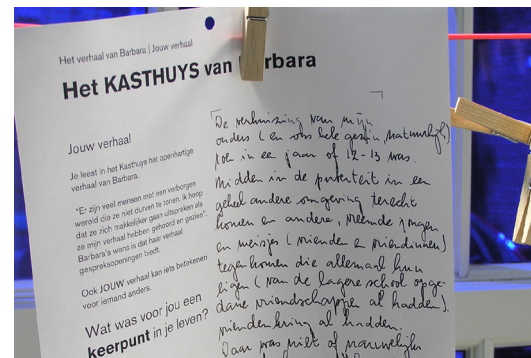 Het verhaal van Barbara | Jouw verhaal
Het KASTHUYS van rbara
Jouw verhaal
Je leest in het Kasthuys het openhartige
verhaal van Barbara.
"Er zijn veel mensen met een verborgen
wereld die ze niet durven te tonen. Ik hoop
dat ze zich makkelijker gaan uitspreken als
ze mijn verhaal hebben gehoord en gezien".
Barbara's wens is dat haar verhaal
gespreksopeningen biedt.
Ook JOUW verhaal kan iets betekenen
voor iemand anders.
Wat was voor jou een
keerpunt in je leven?
De verhuizing van mijn
ouders (en ons hele gezin, natuurlijk)
toen in een jaar of 12-13 was.
Midden in de puberteit in een
geheel andere omgeving terecht
komen en andere, vreemde jongen
en meisjes (vrienden en vriendinnen)
tegenkomen die allemaal hun
eigen (van de lagere school opge-
dane vriendschappen al hadden).
vriendenkring al hadden.
Daar was niet of nauwelijks